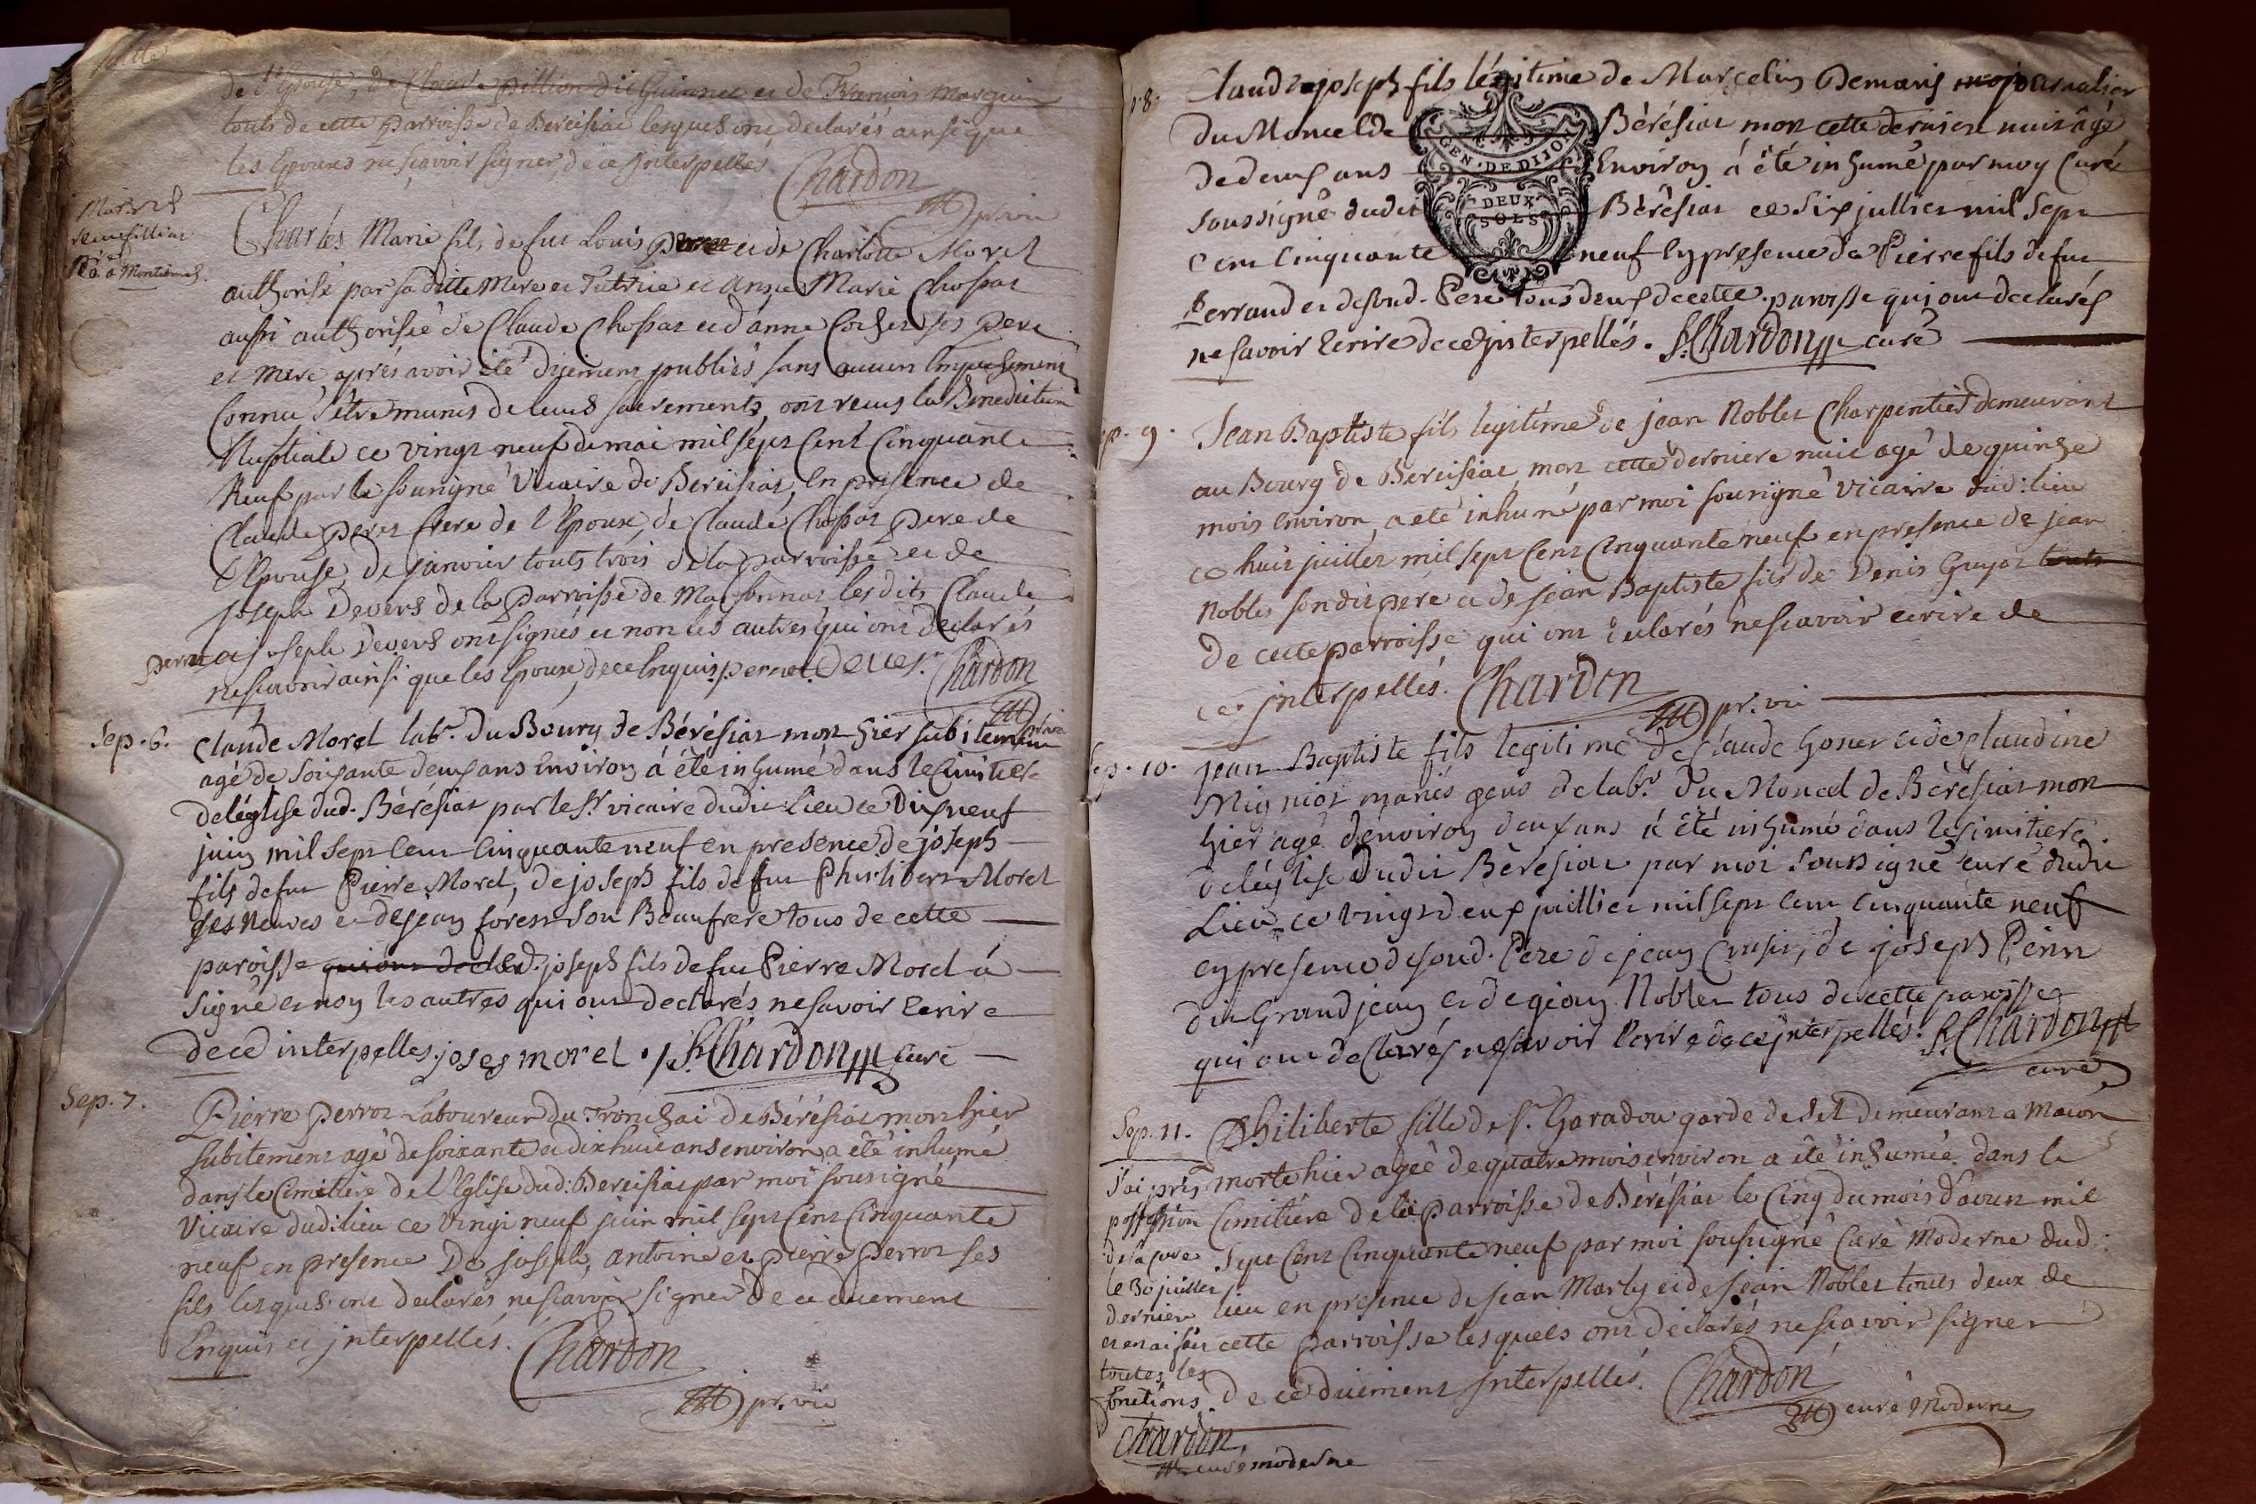 de l'Epouse, de Claude pillion dit Guionnet et de François marguin
touts de cette parroisse de Bereisiat lesquels ont declarés ainsi que
les Epoux ne sçavoir signer, de ce interpellé.
Chardon
pr. vic
Mar.
Charles Marie fils de fut Louis et de Charlotte Morel
authorisé par sa ditte Mere et Tutrice et Anne Marie Chossat
aussi authorisée de Claude Chossat et d'anne Cochet ses pere
et mere apres avoir été duement publiés sans aucun Empechement
Connu s'etre munis de leurs sacrements, ont recus la Benediction
Nuptiale ce vingt neuf de mai mil sept Cent Cinquante
Neuf par le sousigné Vicaire de Bereisiat, En presence de
Claude frere de l'Epoux, de Claude Chossat pere de
l'Epouse, de janvier touts trois de la parroisse et de
joseph Devers de la parroisse de Marsonnas les dits Claude
et joseph Devers ont signés et non les autres qui ont declarés
ne sçavoir ainsi que les Epoux, de ce Enquis. pernet Devers Chardon
Sep. 6.
Claude Morel lab.r du Bourg de Bérésiat mort hier subitement
agé de soixante deux ans Environ á été inhumé dans le Cimitier
de léglise dud. Bérésiat par le Sr. vicaire dudit Lieu ce Dix neuf
juin mil sept Cent Cinquante neuf en presence de joseph
fils de fut Pierre Morel, de joseph fils de fut Philibert Morel
ses neuves et de jean forest son Beaufrere tous de cette
paroisse qui ont decl led. joseph fils de fut Pierre Morel á
signé et non les autres qui ont declarés ne savoir Ecrire
de ce interpelles. joseg morel. Chardon curé
Sep. 7.
Pierre perrot Laboureur du Tronchai de Bérésiat mort hier
subitement agé de soixante et dix huit ans environ a été inhumé
dans le Cimetiere de l'Eglise dud: Bereisiat par moi sousigné
Vicaire dud: lieu ce Vingt neuf juin mil sept Cent Cinquante
neuf en presence De joseph, antoine et pierre perrot ses
fils lesquels ont declarés ne scavoir signer de ce duement
Enquis et interpellés. Chardon
pr. vic
8.
Claude joseph fils légitime de Marcelin Demaris journalier
du Moncel de Bérésiat mort cette derniere nuit âgé
de deux ans Environ á été inhumé par moy Curé
GEN. DE DIJON
DEUX SOLS
soussigné dudit Bérésiat ce six juillier mil sept
Cent Cinquante neuf En presence de Pierre fils de fut
perraud et de son d. Pere tous deux de cette paroisse qui ont declarés
ne savoir Ecrire de ce interpellés. Chardon curé
Sep. 9.
Jean Baptiste fils legitime de jean Noblet Charpentier demeurant
au Bourg de Bereisiat mort cette derniere nuit agé de quinze
mois environ, a eté inhumé par moi sousigné vicaire dud: lieu
ce huit juillet mil sept Cent Cinquante neuf en presence de jean
Noblet son dit pere et de jean Baptiste fils de Denis Guyot touts
de cette parroisse qui ont declarés ne scavoir ecrire de
ce interpellés. Chardon
pr. vic
Sep. 10.
jean Baptiste fils legitime de Claude Gonet et de Claudine
Migniot mariés gens de lab.r du Moncel de Bérésiat mort
hier agé denviron deux ans á été inhumé dans le cimitiere
de léglise dudit Bérésiat par moi soussigné curé dudit
Lieu ce vingt deux juillet mil sept Cent Cinquante neuf
en presence de son d. Pere de jean de joseph Perin
dit Grand jean et de jean Noblet tous de cette paroisse
qui ont declarés ne savoir Ecrire de ce interpellés. Chardon
curé
Sep. 11.
Philiberte fille de Sr. Garadou garde de sel demeurant a Macon
morte hier ageé de quatre mois environ a été inhumée dans le
Cimitiére de la parroisse de Bérésiat le Cinq du mois d'aoust mil
Sept Cent Cinquante neuf par moi sousigné Curé Moderne dud:
lieu en presence de jean Marly et de jean Noblet touts deux de
cette parroisse lesquels ont déclarés ne scavoir signer
de ce duement interpellés. Chardon
curé Moderne
J'ai pris
possession
de la cure
le 30 juillet
dernier
et en ai fait
toutes les
fonctions
Chardon
curé moderne